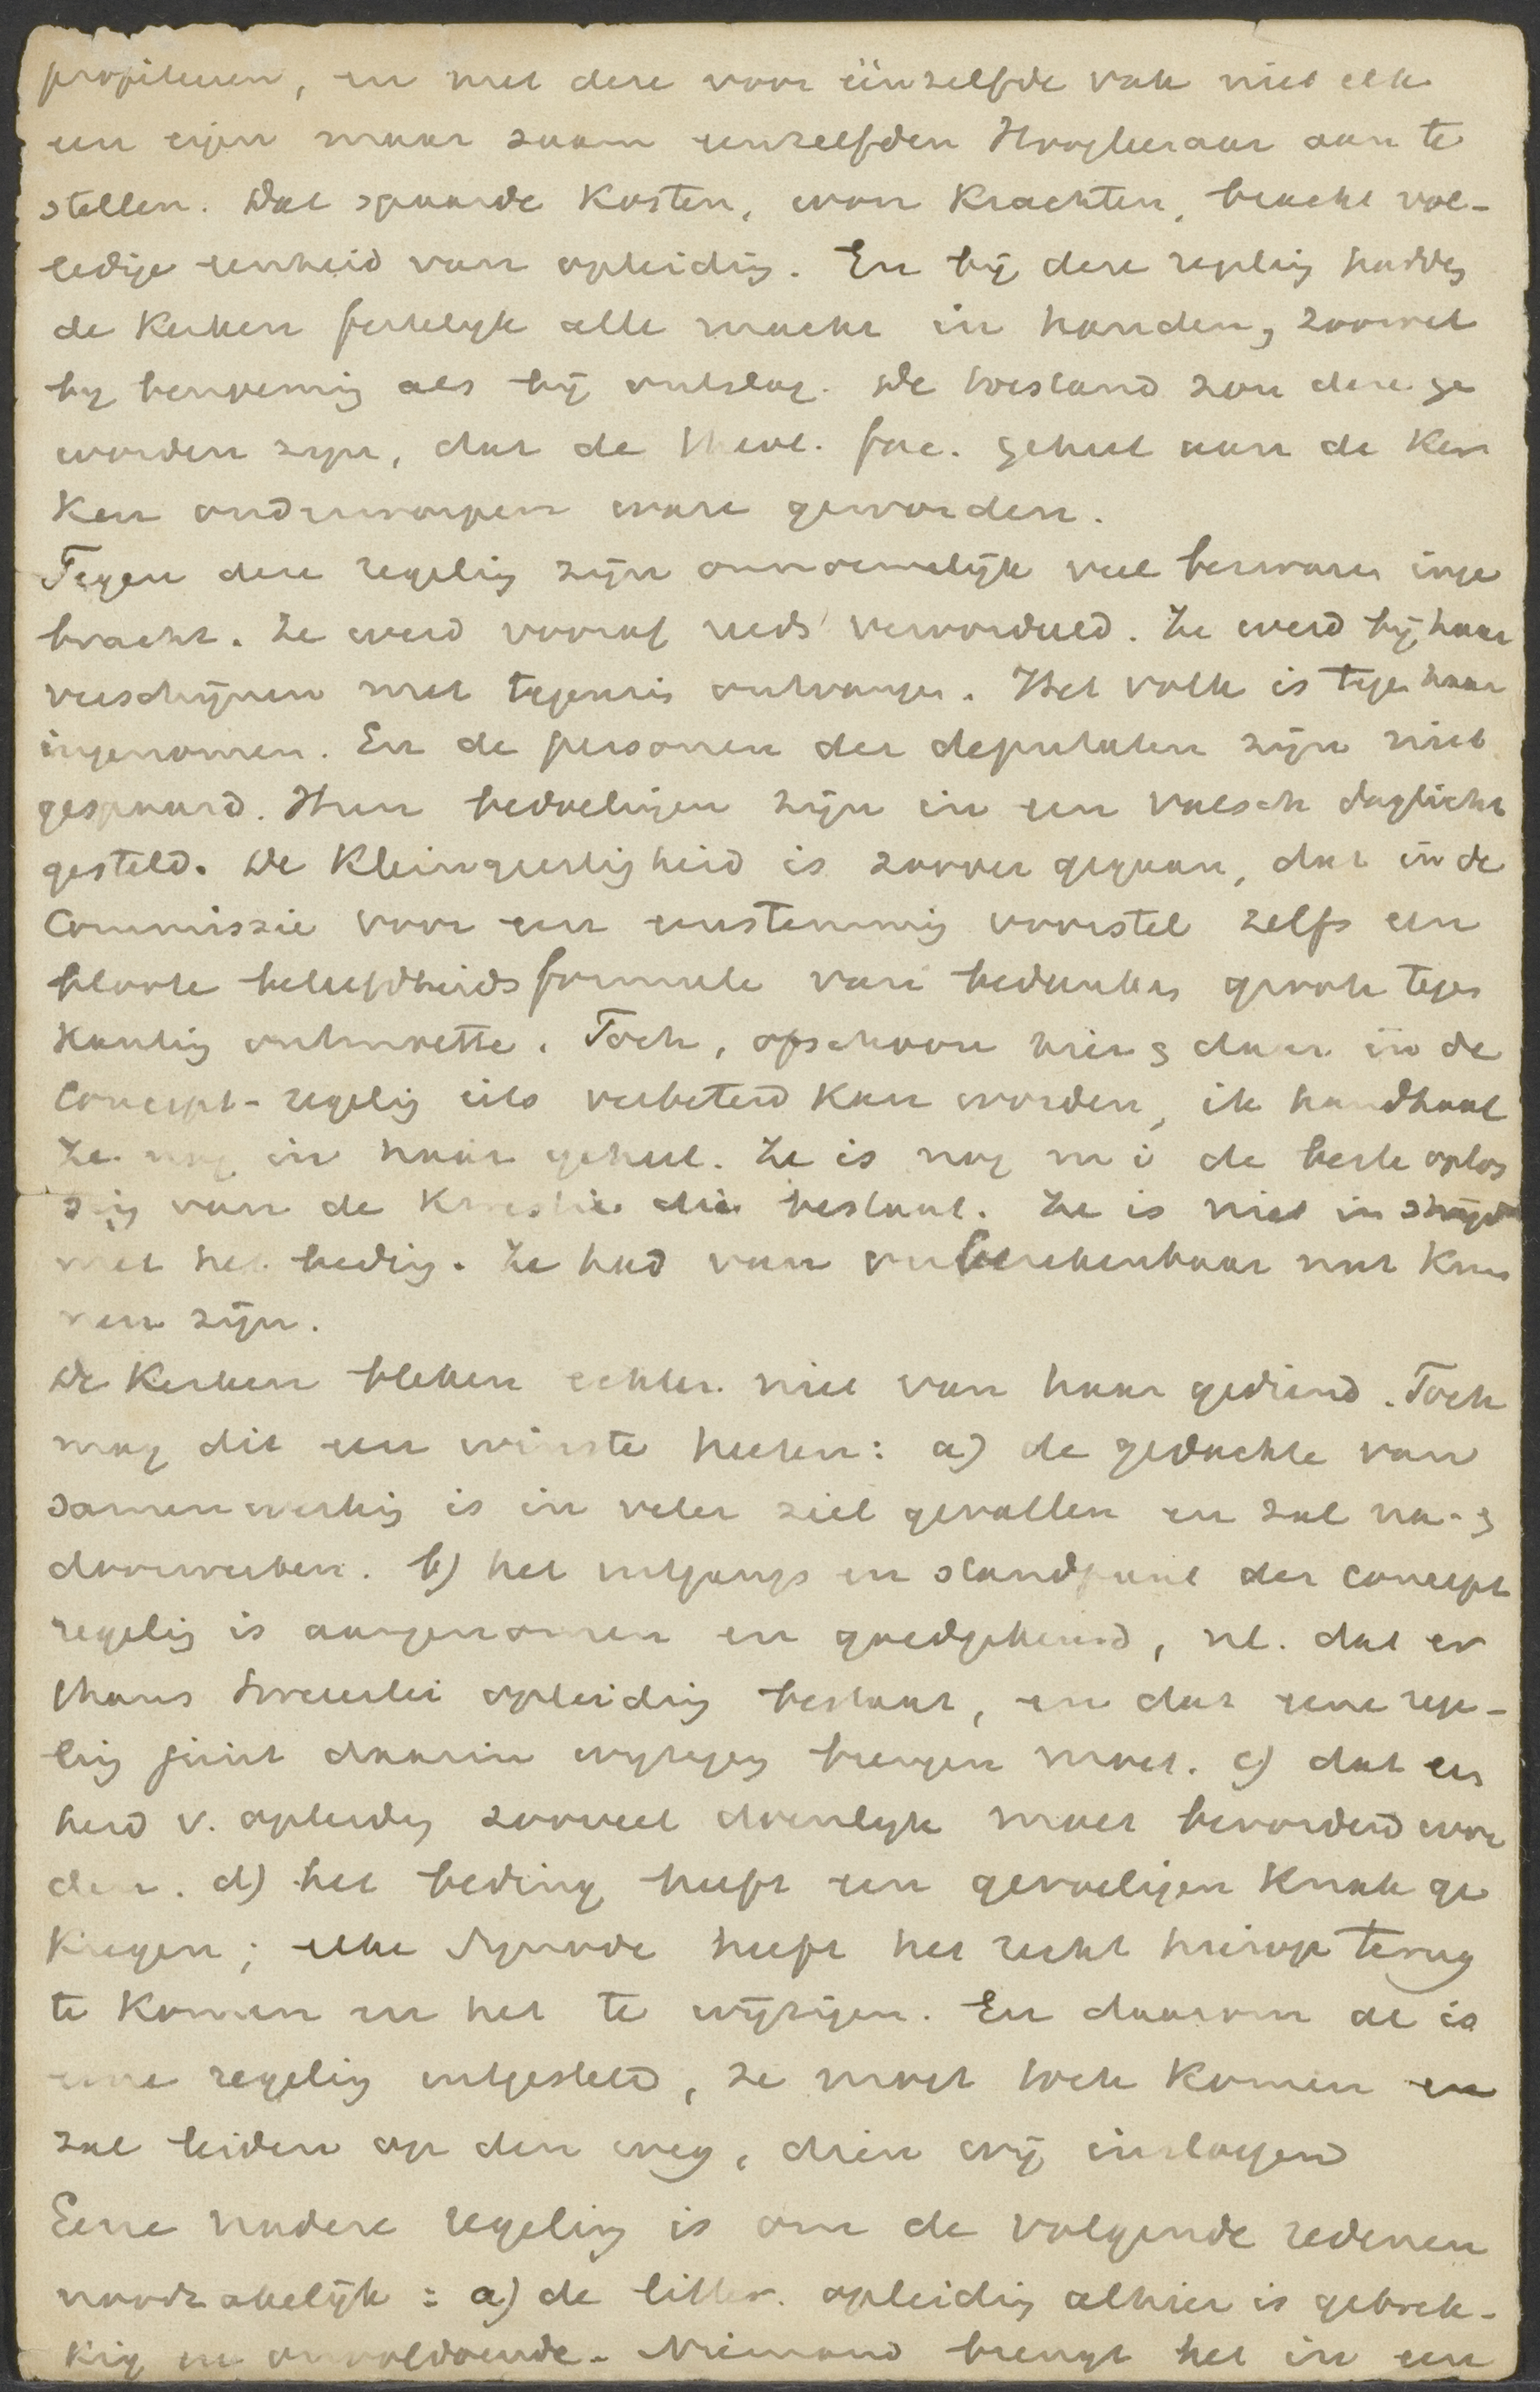 profiteeren, en met deze voor éénzelfde vak niet elk
een eigen maar saam eenzelfden Hoogleeraar aan te
stellen. Dat spaarde kosten, won krachten, bracht vol-
ledige eenheid van opleiding. En bij deze regeling hadden
de Kerken feitelijk alle macht in handen, zoowel
bij benoeming als bij ontslag. De toestand zou deze ge
worden zijn, dat de theol. fac. geheel aan de Ker
ken onderworpen ware geworden.
Tegen deze regeling zijn onnoemelijk veel bezwaren inge
bracht. Ze werd vooraf reeds veroordeeld. Ze werd bij haar
verschijnen met tegenzin ontvangen. Het volk is tegen haar
ingenomen. En de personen der deputaten zijn niet
gespaard. Hun bedoelingen zijn in een valsch daglicht
gesteld. De kleingeestigheid is zoover gegaan, dat in de
Commissie voor een eenstemmig voorstel zelfs een
bloote beleefdheidsformule van bedanken groote tegen
kanting ontmoette. Toch, ofschoon hier & daar in de
Concept-regeling iets verbeterd kan worden, ik handhaaf
ze nog in haar geheel. Ze is nog m i de beste oplos
sing van de kwestie die bestaat. Ze is niet in strijd
met het beding. Ze had van onberekenbaar nut kun
nen zijn.
De Kerken bleken echter niet van haar gediend. Toch
mag dit een winste heeten: a) de gedachte van
samenwerking is in veler ziel gevallen en zal na- &
doorwerken. b) het uitgangs en standpunt der concept
regeling is aangenomen en goedgekeurd, nl. dat er
thans tweeërlei opleiding bestaat, en dat eene rege-
ling juist daarin wijziging brengen moet. c) dat een
heid v. opleiding zooveel doenlijk moet bevorderd wor
den. d) het beding heeft een gevoeligen knak ge
kregen; elke Synode heeft het recht hierop terug
te komen en het te wijzigen. En daarom al is
eene regeling uitgesteld, ze moet toch komen en
zal leiden op den weg, dien wij insloegen
Eene nadere regeling is om de volgende redenen
noodzakelijk: a) de litter. opleiding alhier is gebrek-
kig en onvoldoende. Niemand brengt het in een